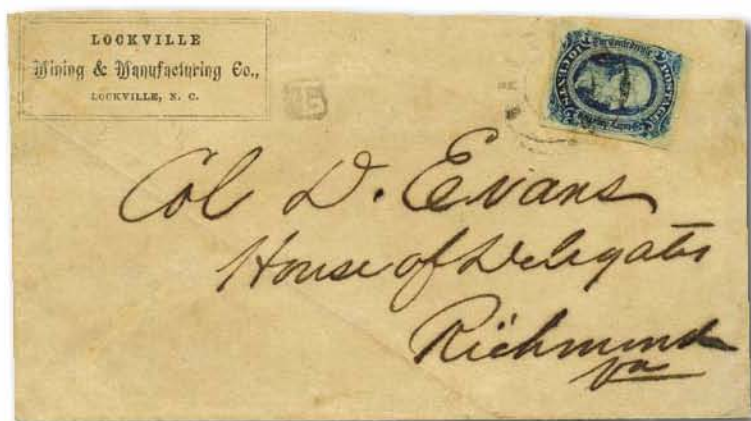 LOCKVILLE
Mining & Manufacturing Co.,
LOCKVILLE, N. C.
POSTAGE
TEN CENTS
Col D. Evans
House of Delegates
Richmond
Va